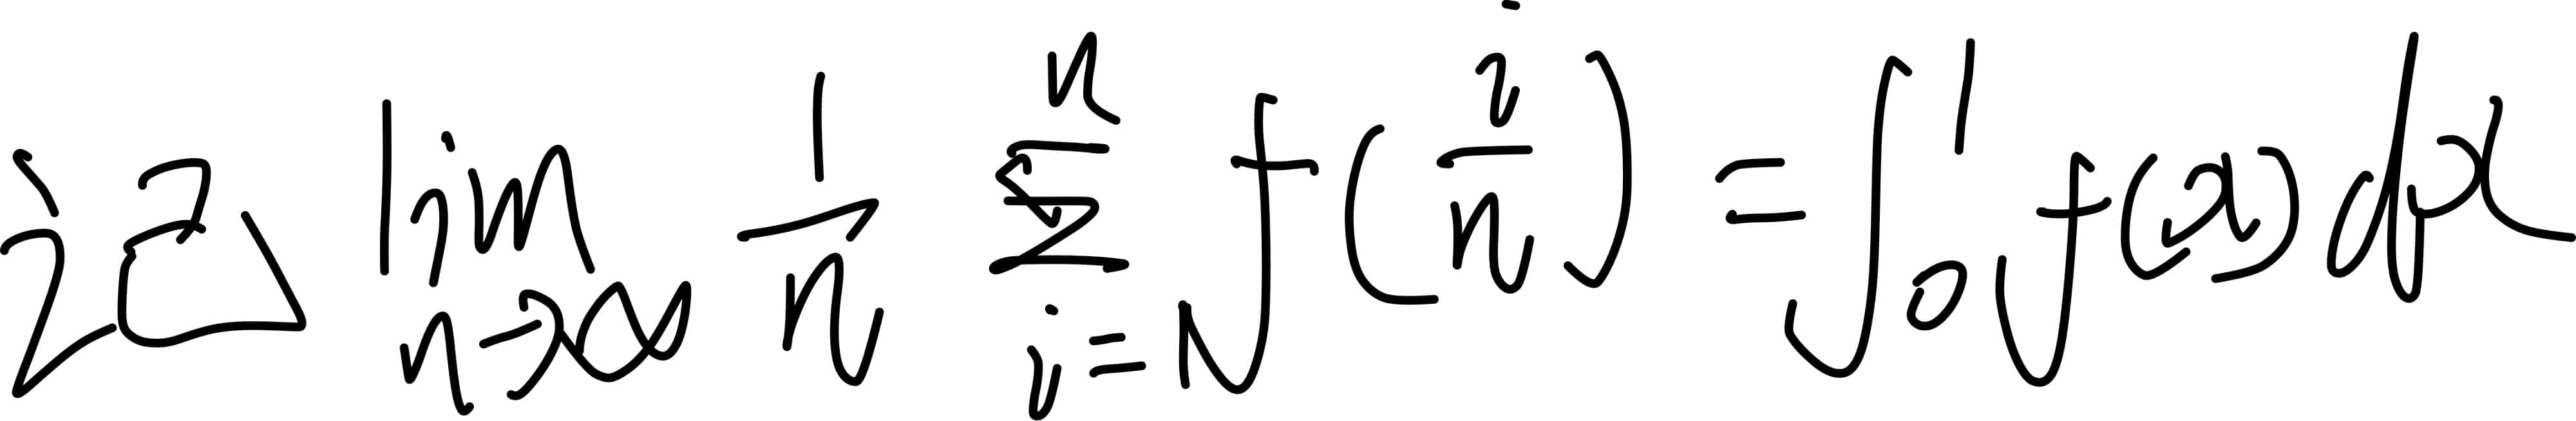 记 $\lim_{n \to \infty} \frac{1}{n} \sum_{i=1}^{n} f(\frac{i}{n}) = \int_0^1 f(x) dx$